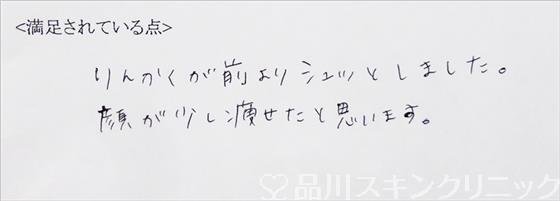 <満足されている点>
りんかくが前よりシュッとしました。
顔が少し痩せたと思います。
品川スキンクリニック